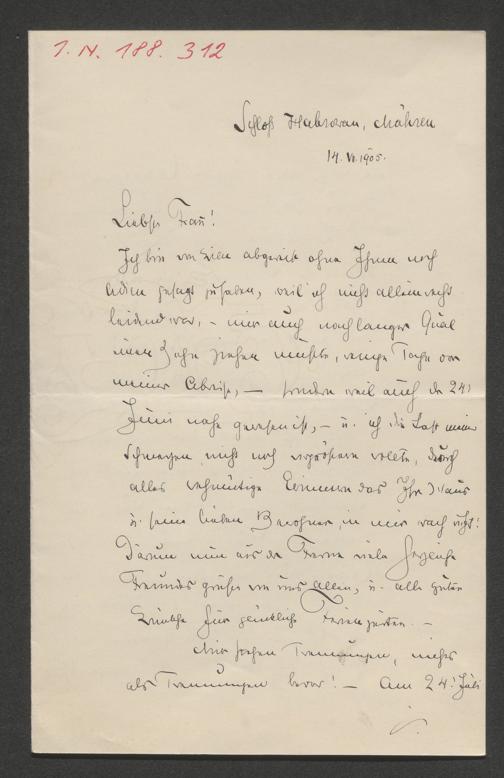 I. N. 188. 312
Schloß Habrowan, Mähren
14. VI. 1905.
Liebste Frau!
Ich bin von Wien abgereist ohne Ihnen noch
Adieu gesagt zu haben, weil ich nicht allein recht
leidend war, – mir auch nach langer Qual
einen Zahn ziehen mußte, einige Tage vor
meiner Abreise, – sondern weil auch der 24.
Juni nahe gewesen ist, – u. ich die Last meiner
Schmerzen nicht noch vergrößern wollte, durch
alles wehmütige Erinnern das Ihr Haus
u. seine lieben Bewohner in mir wach ruft!
Darum nun aus der Ferne viele herzliche
Freundesgrüße von uns allen, u. alle guten
Wünsche für glückliche Ferienzeiten. –
Mir stehen Trennungen, nichts
als Trennungen bevor! – Am 24. Juli